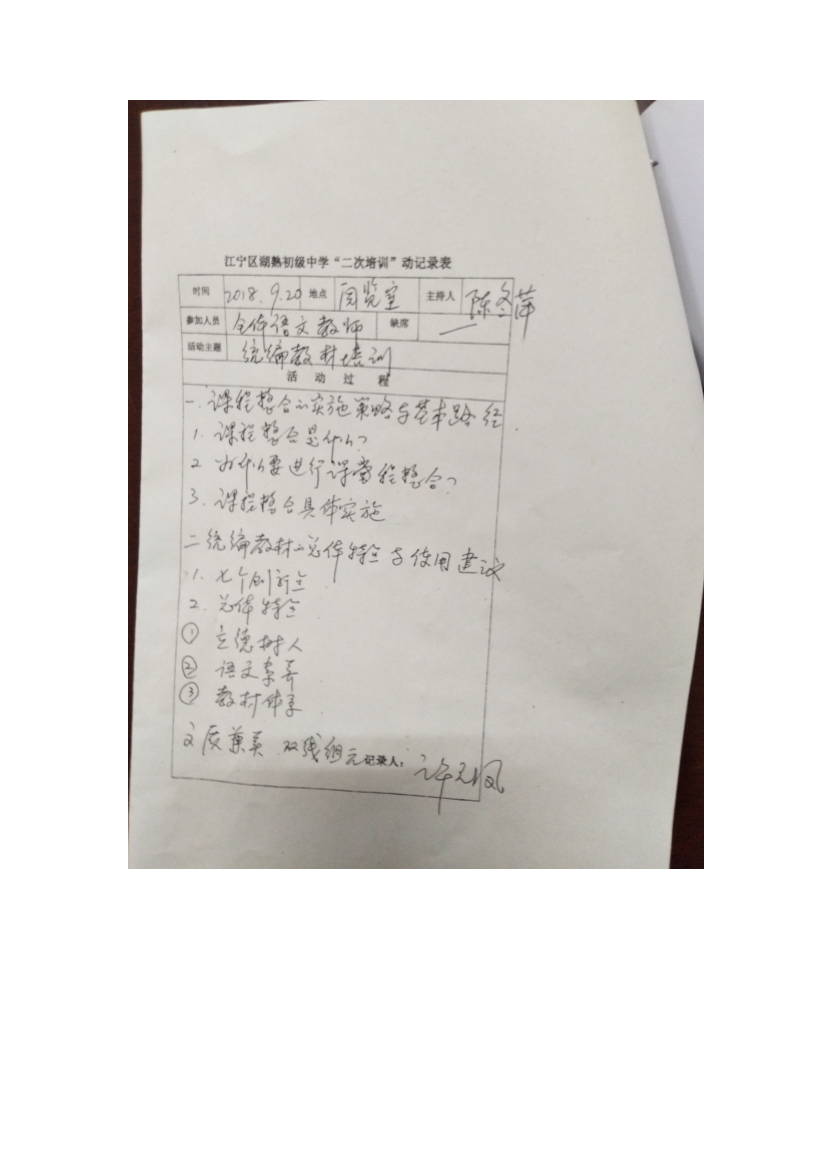 江宁区湖熟初级中学“二次培训”动记录表
时间 2018.9.20 地点 阅览室 主持人 陈冬萍
参加人员 全体语文教师 缺席 —
活动主题 统编教材培训
活动过程
一.课程整合的实施策略与基本路径.
1.课程整合是什么?
2 为什么要进行课程整合?
3.课程整合具体实施
二统编教材的总体特点与使用建议
1.七个创新点
2.总体特点
① 立德树人
② 语文素养
③ 教材体系
文质兼美 双线组元 记录人:许